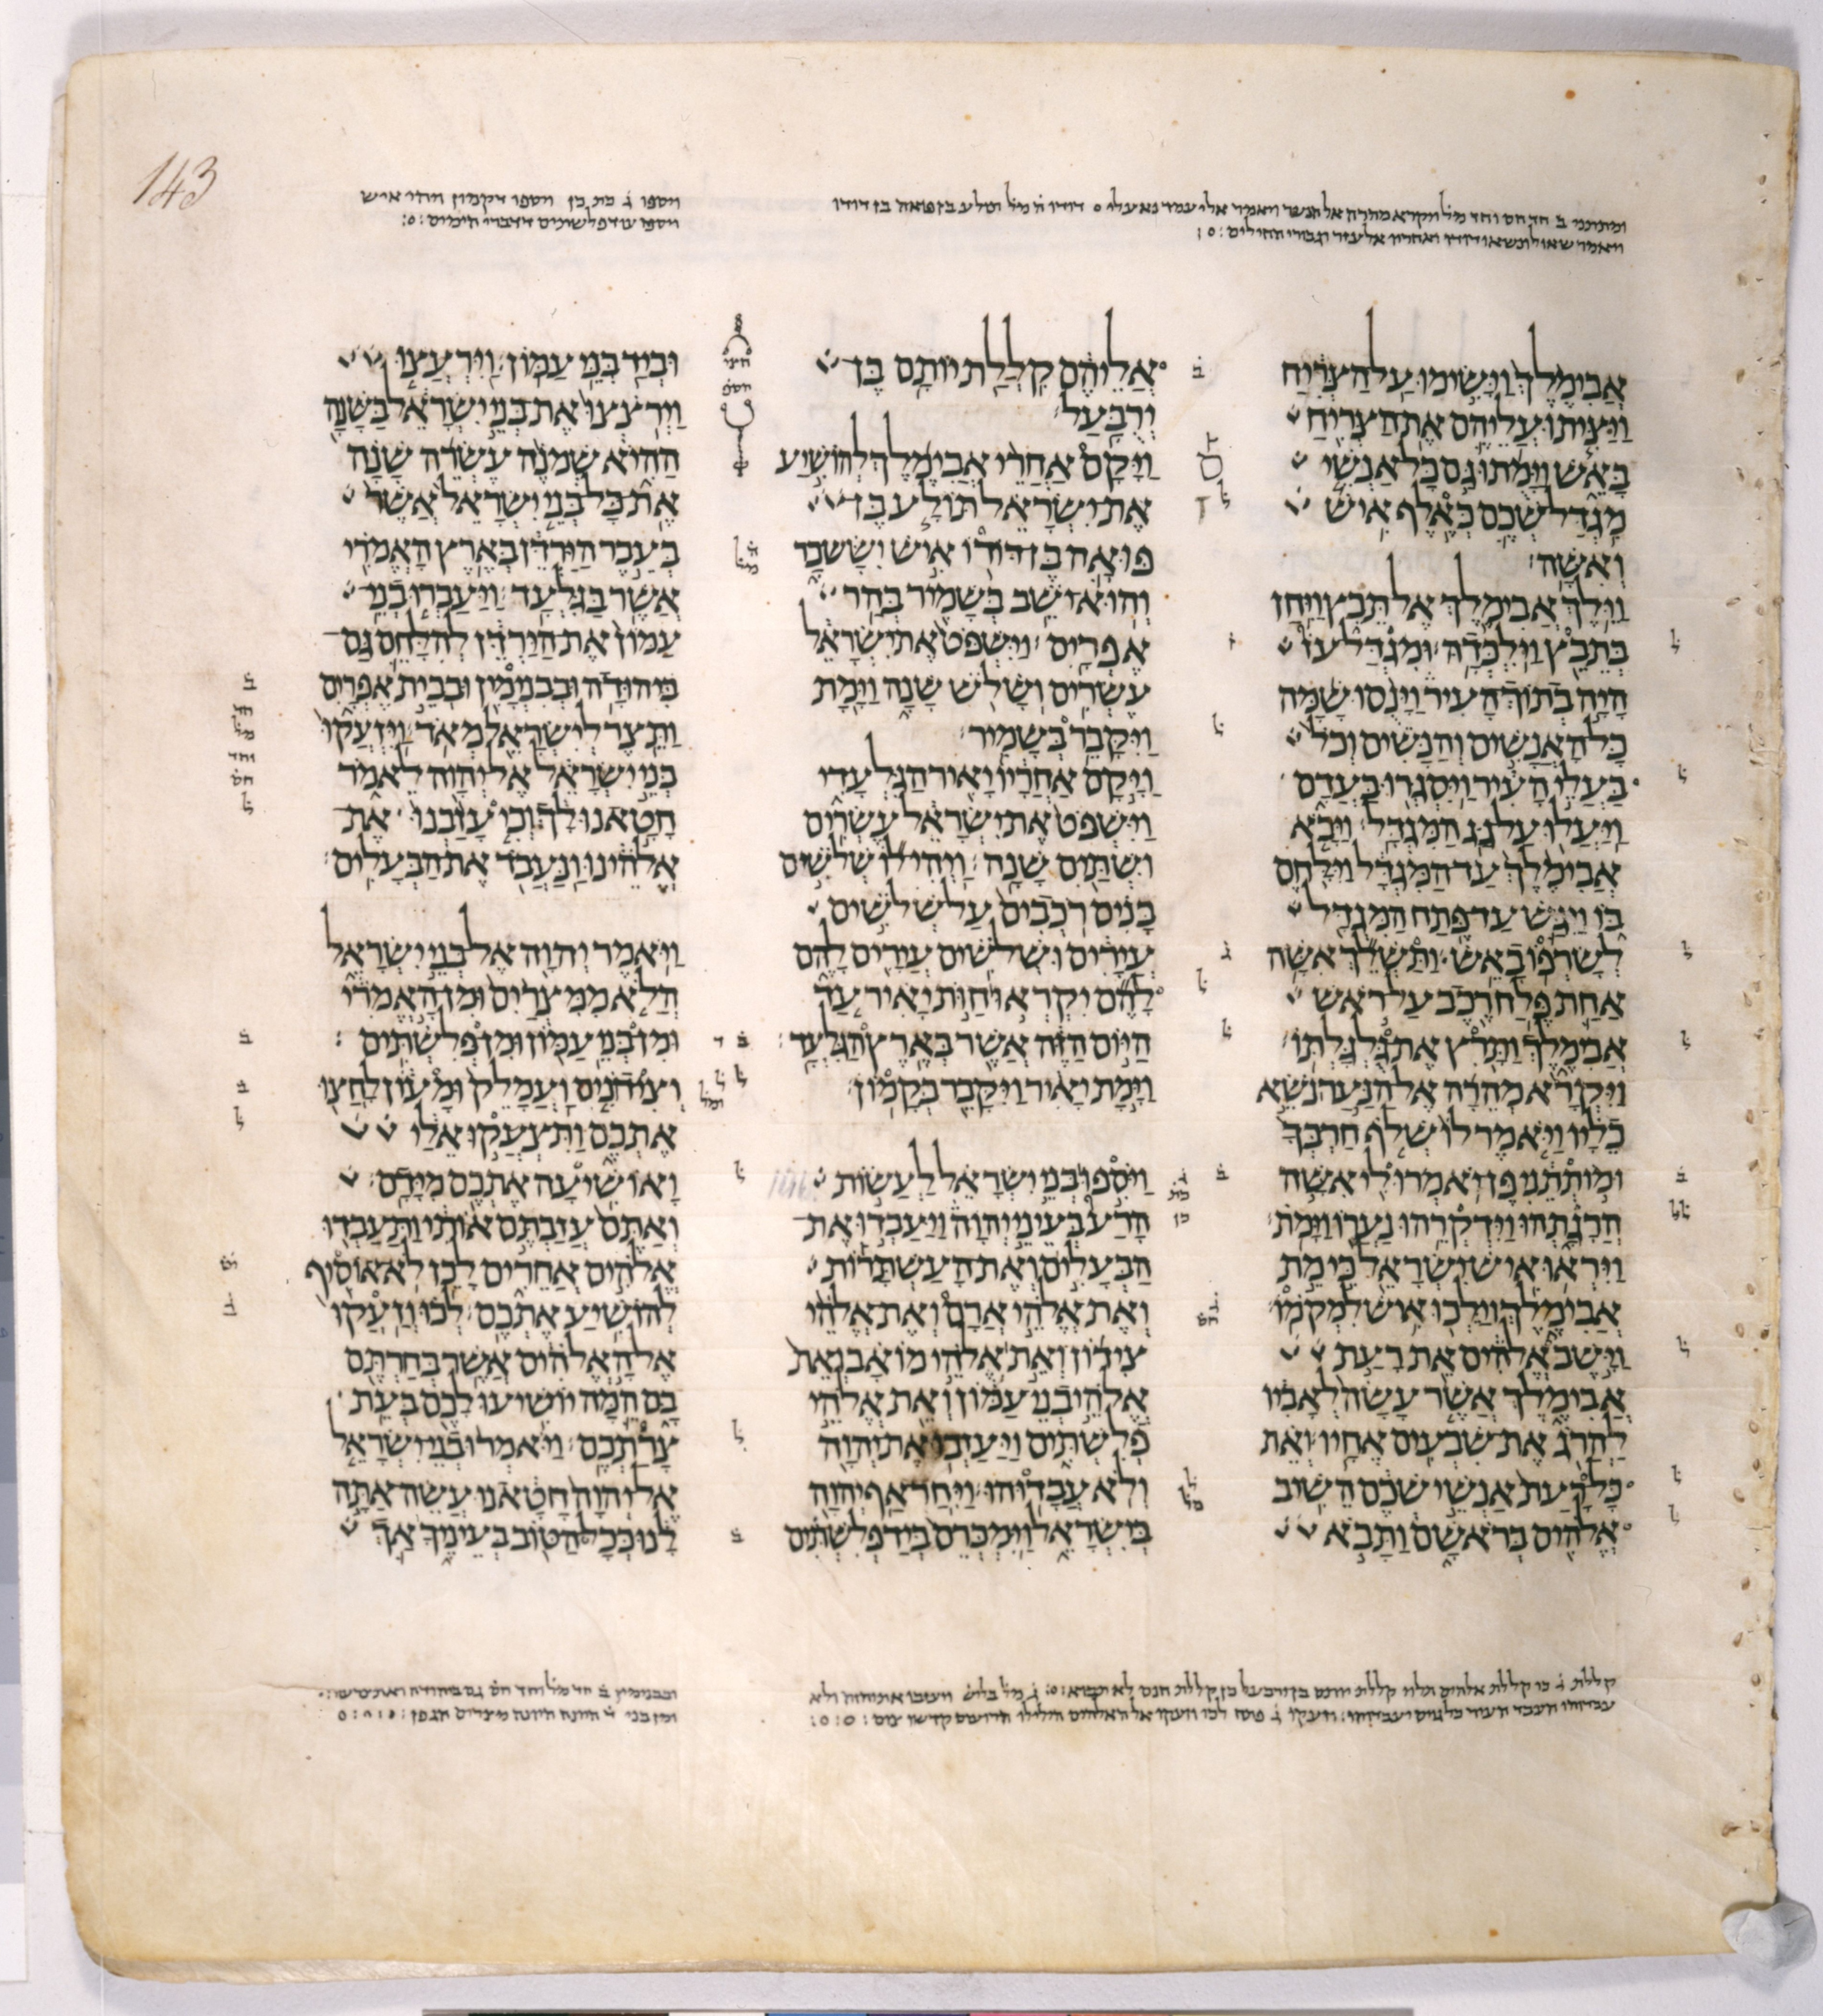 143
ומותתני ב חד חס וחד מל ויקרא מהרה אל הנער ויאמר אלי עמד נא עלי דודו מל תולע בן פואה בן דודו
ויאמר שאול ונשאו דודו ואחריו אלעזר וגבורי החילים
ויספו ויספו דקמון ויהי איש
ויספו עוד פלשתים דדברי הימים
אבימלך וישימו על הצריח
ויציתו עליהם את הצריח
באש וימתו גם כל אנשי
מגדל שכם כאלף איש
ואשה
וילך אבימלך אל תבץ ויחן
בתבץ וילכדה ומגדל עז
היה בתוך העיר וינסו שמה
כל האנשים והנשים וכל
בעלי העיר ויסגרו בעדם
ויעלו על גג המגדל ויבא
אבימלך עד המגדל וילחם
בו ויגש עד פתח המגדל
לשרפו באש ותשלך אשה
אחת פלח רכב על ראש
אבימלך ותרץ את גלגלתו
ויקרא מהרה אל הנער נשא
כליו ויאמר לו שלף חרבך
ומותתני פן יאמרו לי אשה
הרגתהו וידקרהו נערו וימת
ויראו איש ישראל כי מת
אבימלך וילכו איש למקמו
וישב אלהים את רעת
אבימלך אשר עשה לאביו
להרג את שבעים אחיו ואת
כל רעת אנשי שכם השיב
אלהים בראשם ותבא
אליהם קללת יותם בן
ירבעל
ויקם אחרי אבימלך להושיע
את ישראל תולע בן
פואה בן דודו איש יששכר
והוא ישב בשמיר בהר
אפרים וישפט את ישראל
עשרים ושלש שנה וימת
ויקבר בשמיר
ויקם אחריו יאיר הגלעדי
וישפט את ישראל עשרים
ושתים שנה ויהי לו שלשים
בנים רכבים על שלשים
עירים ושלשים עירים להם
להם יקראו חות יאיר עד
היום הזה אשר בארץ הגלעד
וימת יאיר ויקבר בקמון
ויספו בני ישראל לעשות
הרע בעיני יהוה ויעבדו את
הבעלים ואת העשתרות
ואת אלהי ארם ואת אלהי
צידון ואת אלהי מואב ואת
אלהי בני עמון ואת אלהי
פלשתים ויעזבו את יהוה
ולא עבדוהו ויחר אף יהוה
בישראל וימכרם ביד פלשתים
וביד בני עמון וירעצו
וירצצו את בני ישראל בשנה
ההיא שמנה עשרה שנה
את כל בני ישראל אשר
בעבר הירדן בארץ האמרי
אשר בגלעד ויעברו בני
עמון את הירדן להלחם גם
ביהודה ובבנימין ובבית אפרים
ותצר לישראל מאד ויזעקו
בני ישראל אל יהוה לאמר
חטאנו לך וכי עזבנו את
אלהינו ונעבד את הבעלים
ויאמר יהוה אל בני ישראל
הלא ממצרים ומן האמרי
ומן בני עמון ומן פלשתים
וצידונים ועמלק ומעון לחצו
אתכם ותצעקו אלי
ואושיעה אתכם מידם
ואתם עזבתם אותי ותעבדו
אלהים אחרים לכן לא אוסיף
להושיע אתכם לכו וזעקו
אל האלהים אשר בחרתם
בם המה יושיעו לכם בעת
צרתכם ויאמרו בני ישראל
אל יהוה חטאנו עשה אתה
לנו ככל הטוב בעיניך אך
קללת אלהים תלוי קללת יותם בן ירבעל כן קללת חנם לא תבוא